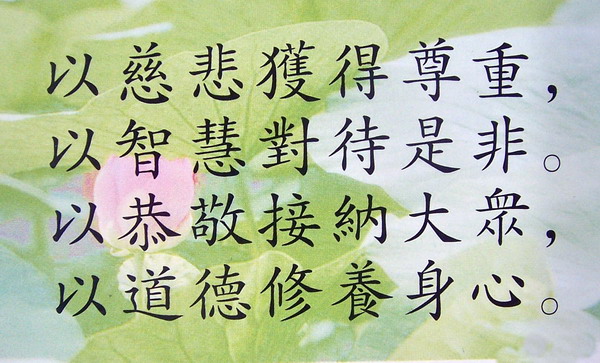 以慈悲獲得尊重，
以智慧對待是非。
以恭敬接納大眾，
以道德修養身心。